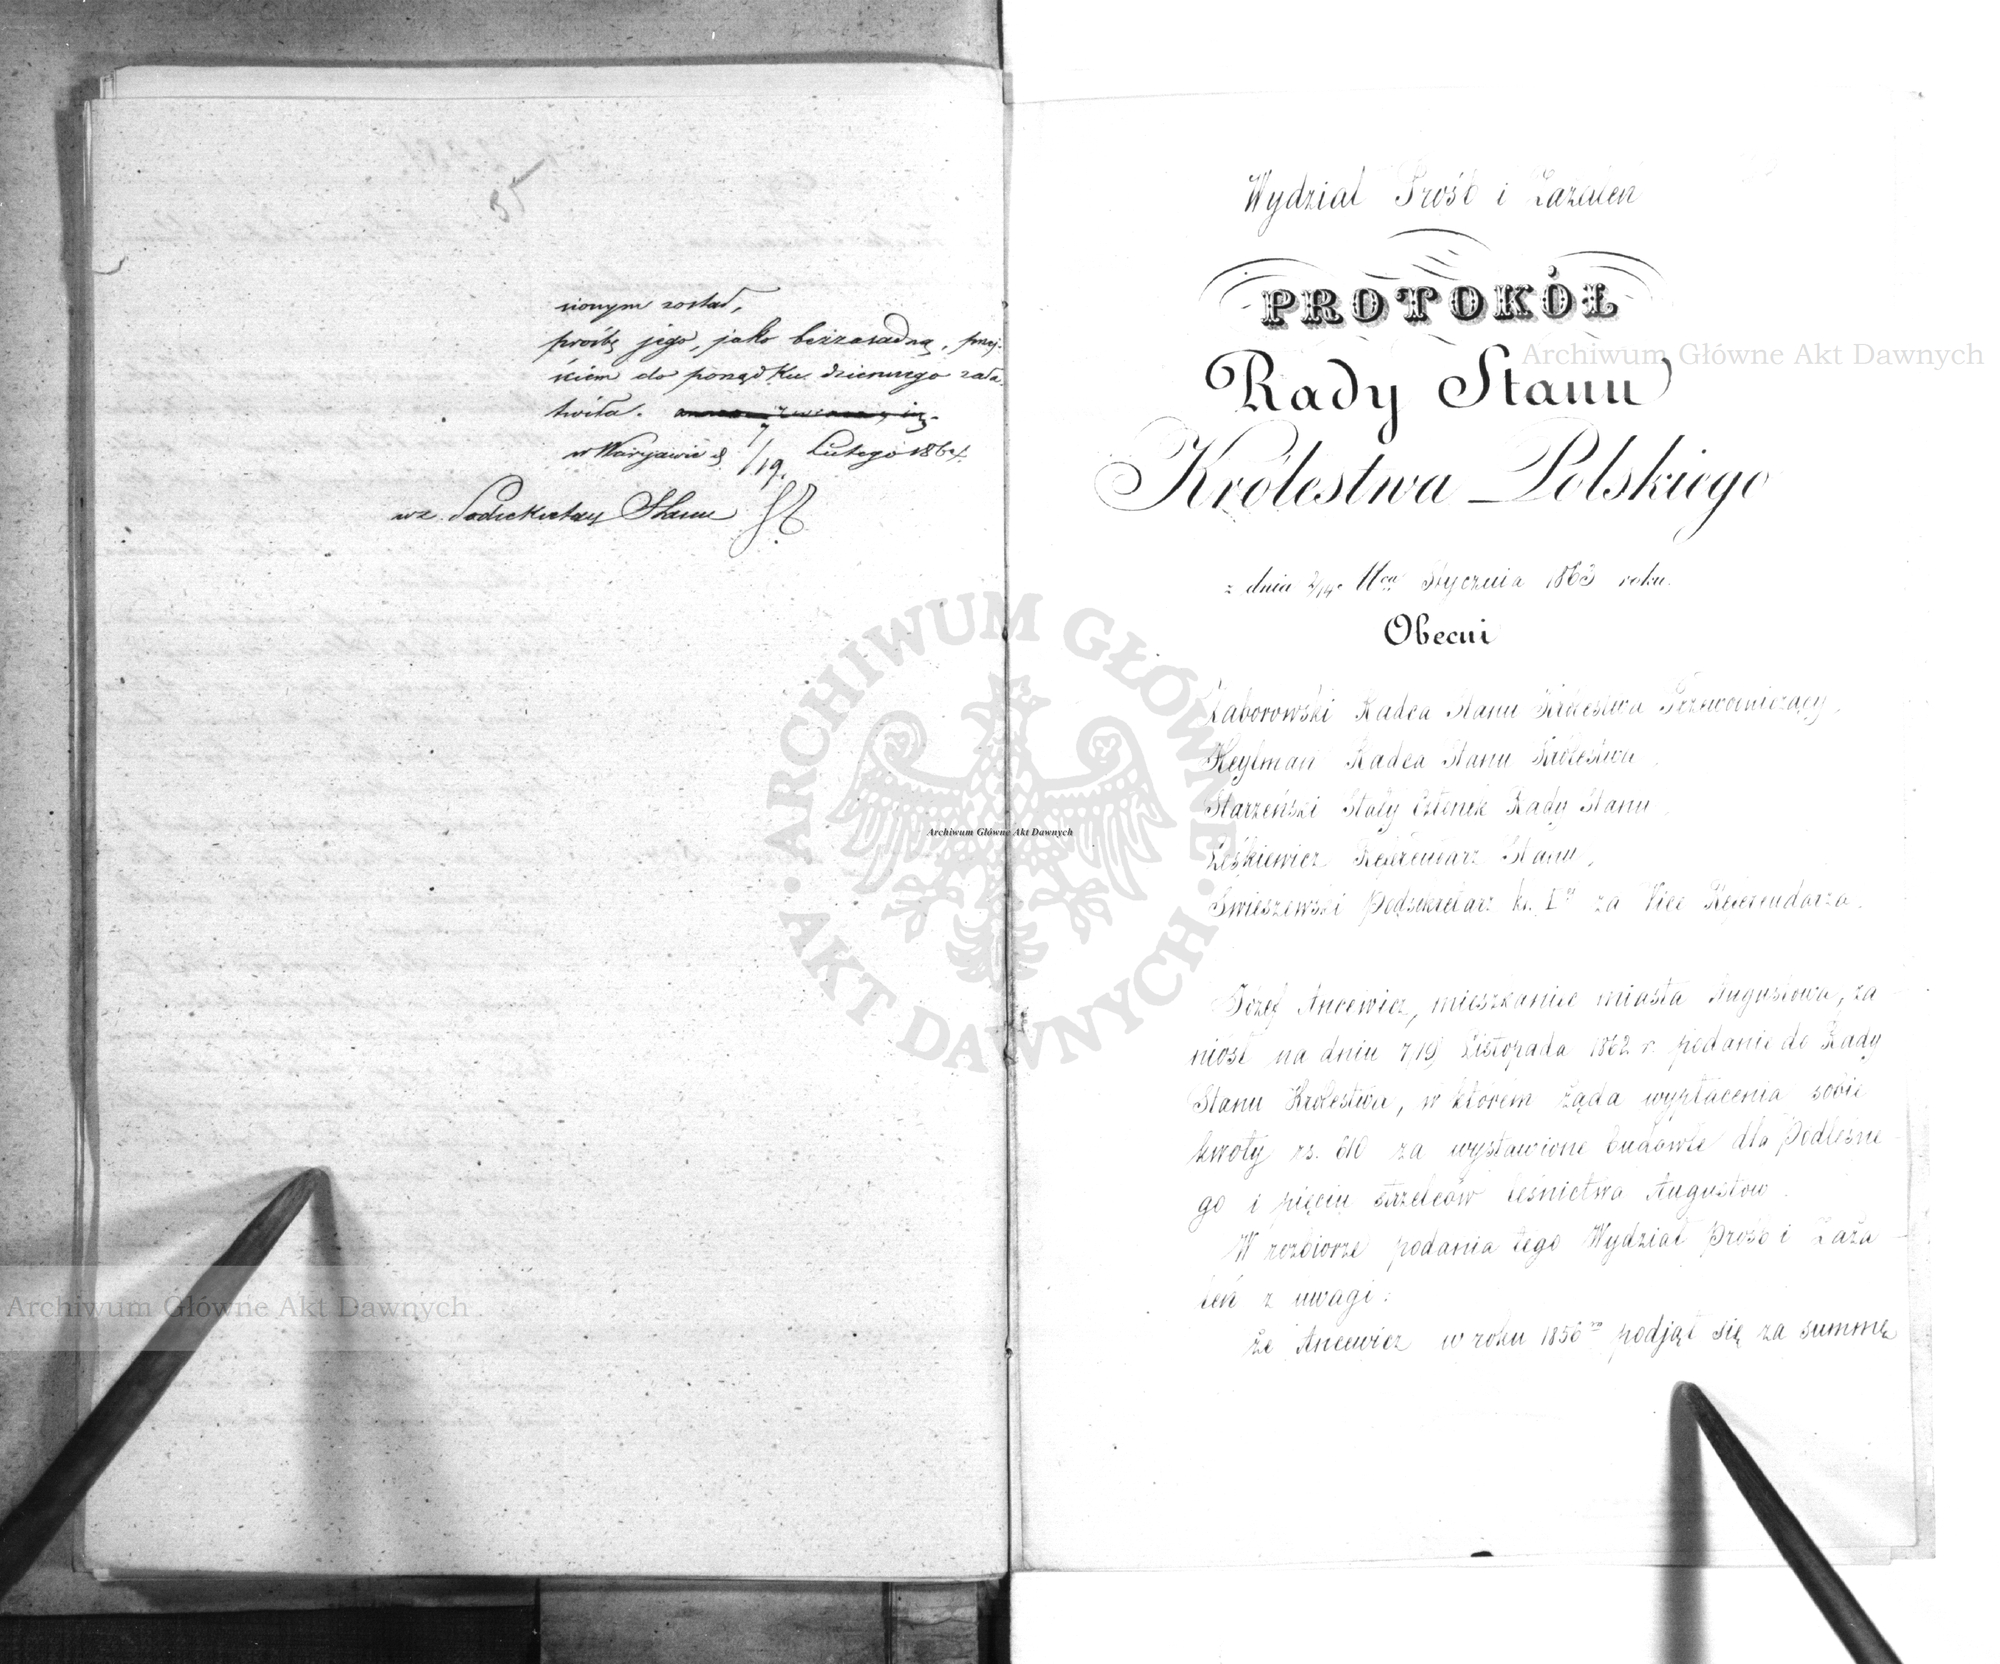 35
nionym został,
prośbę jego, jako bezzasadną, przej-
ściem do porządku dziennego zała-
twiła.
w Warszawie d. 7/19. Lutego 1864.
wz. Podsekretarz Stanu
Wydział Próśb i Zażaleń
PROTOKÓŁ
Rady Stanu
Królestwa Polskiego
z dnia 2/14 Stycznia 1863 roku.
Obecni
Zaborowski Radca Stanu Królestwa Przewodniczący,
Heylman Radca Stanu Królestwa,
Starzeński Stały Członek Rady Stanu,
Leśkiewicz Referendarz Stanu,
Świeszewski Podsekretarz kl. Iej za Vice Referendarza.
Józef Ancewicz, mieszkaniec miasta Augustowa, za
niósł na dniu 7/19 Listopada 1862 r. podanie do Rady
Stanu Królestwa, w którem żąda wypłacenia sobie
kwoty rs. 610 za wystawione budowle dla Podleśne-
go i pięciu strzelców leśnictwa Augustow.
W rozbiorze podania tego Wydział Próśb i Zaża-
leń z uwagi:
że Ancewicz w roku 1856 podjął się za summę
Archiwum Główne Akt Dawnych
Archiwum Główne Akt Dawnych
Archiwum Główne Akt Dawnych
ARCHIWUM GŁÓWNE AKT DAWNYCH